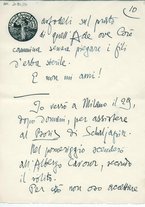 10
asfodeli sul prato
di quell'Ade ove Core
cammina senza piegare i fili
d'erba sterile.
E non mi ami!
Io verrò a Milano il 29,
dopo domani, per assistere
al Boris di Schaljapin.
Nel pomeriggio scenderò
all'Albergo Cavour, secondo
il solito.
Per ciò non oso accettare